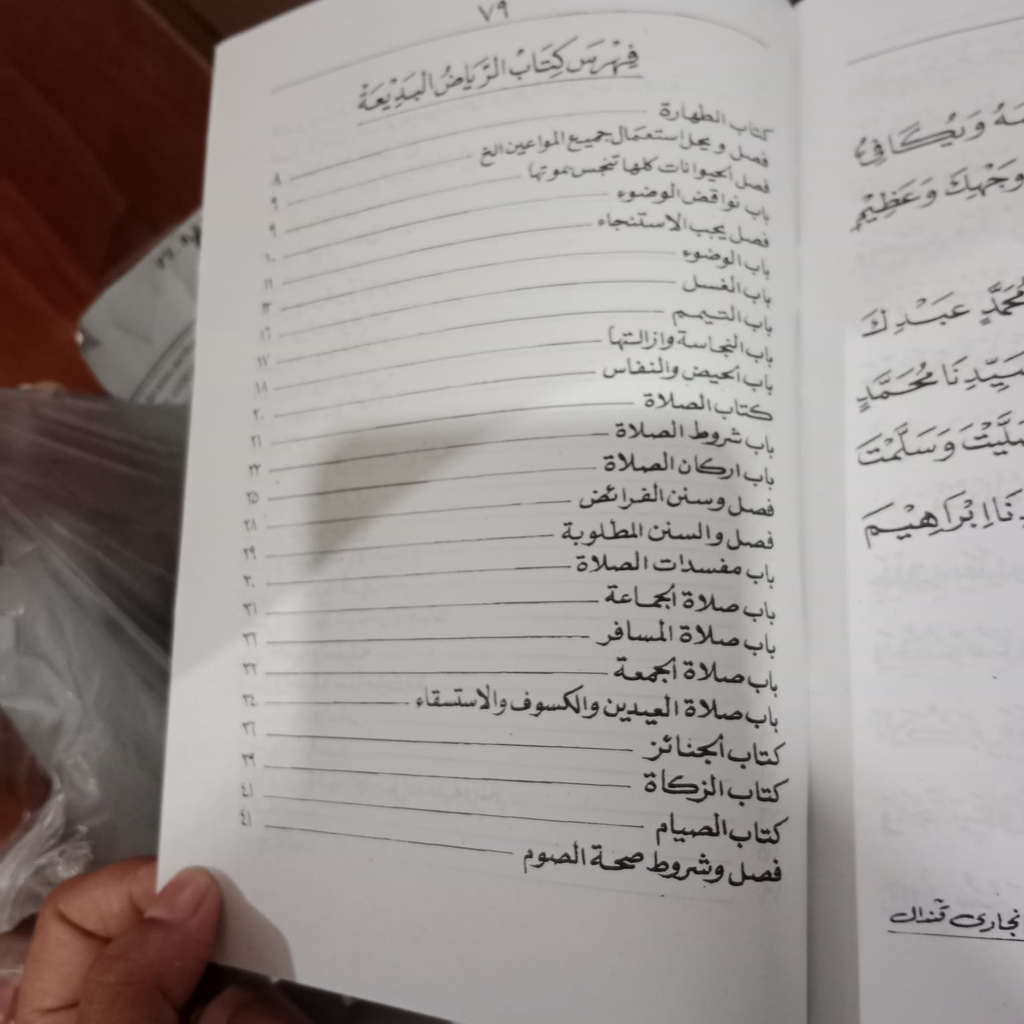 ٧٩
فِهْرَسْ كِتَابْ الرِّيَاضُ الْبَدِيْعَةْ
كتاب الطهارة ٨
فصل ويحل استعمال جميع المواعين الخ ٩
فصل الحيوانات كلها تنجس بموتها ٩
باب نواقض الوضوء ١٠
فصل يجب الاستنجاء ١١
باب الوضوء ١٣
باب الغسل ١٦
باب التيمم ١٧
باب النجاسة وازالتها ١٨
باب الحيض والنفاس ٢٠
كتاب الصلاة ٢١
باب شروط الصلاة ٢٢
باب اركان الصلاة ٢٥
فصل وسنن الفرائض ٢٨
فصل والسنن المطلوبة ٢٩
باب مفسدات الصلاة ٣٠
باب صلاة الجماعة ٣١
باب صلاة المسافر ٣١
باب صلاة الجمعة ٣٢
باب صلاة العيدين والكسوف والاستسقاء ٣٤
كتاب الجنائز ٣٦
كتاب الزكاة ٣٩
كتاب الصيام ٤١
فصل وشروط صحة الصوم ٤١
وَيُكَافِئُ
وَجْهِكَ وَعَظِيْمِ
مُحَمَّدٍ عَبْدِكَ
سَيِّدِنَا مُحَمَّدٍ
صَلَّيْتَ وَسَلَّمْتَ
اِبْرَاهِيْمَ
قندال